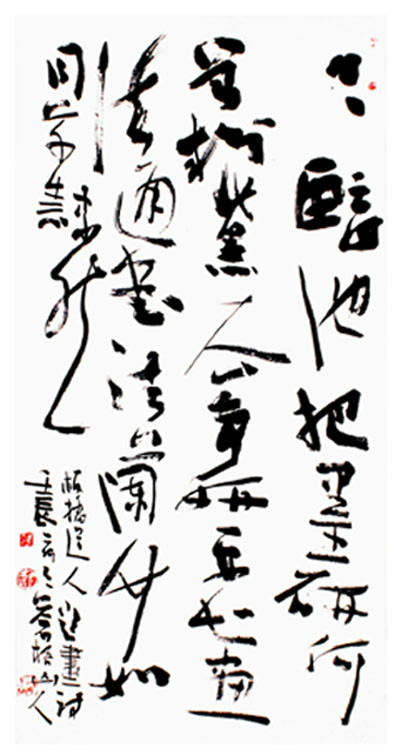 日日臨池把墨研何
曾粉黛去争妍要知畫
法通書法蘭竹如
同草隸然
板橋道人題畫詩
壬辰山人